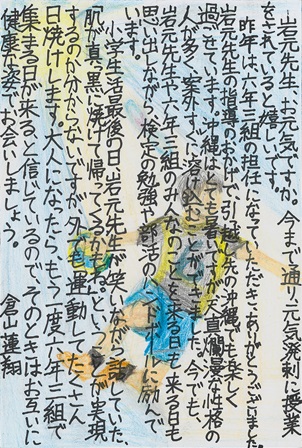 岩元先生、お元気ですか。今まで通り元気発剌に授業
をされていると嬉しいです。
昨年は六年三組の担任になっていただきありがとうございました。
岩元先生の指導のおかげで、引っ越し先の沖縄でも楽しく
過ごせています。沖縄は 天真爛漫な性格の
人が多く、案外すぐに溶け込むことが 今でも、
岩元先生や六年三組のみんなのことを来る日も来る日も
思い出しながら、検定の勉強や部活のハンドボールに励んで
います。
小学生活最後の日、岩元先生が笑いながら話していた、
肌が真っ黒に焼けて帰ってくるか ということが実現
するのか分からないですが、夕 でも運動してたくさん
日焼けします。大人になったら、もう一度六年三組で
集まる日が来ると信じているので、そのときはお互いに
健康な姿でお会いしましょう。
倉山蓮翔